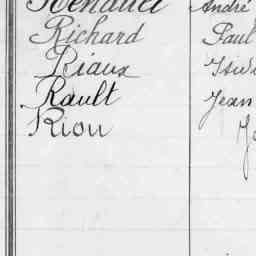 Renaud André
Richard Paul
Riaux
Rault Jean
Riou